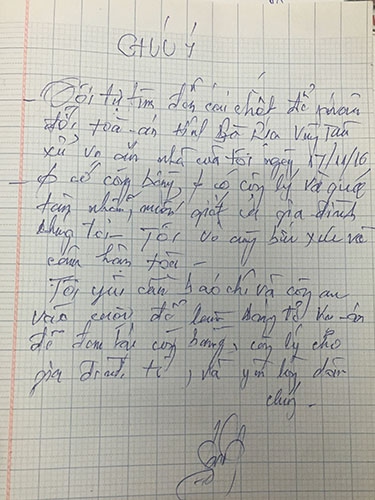 CHÚ Ý
- Tôi tự tìm đến cái chết để phản
đối toà án tỉnh Bà Rịa Vũng Tàu
xử vụ án nhà của tôi ngày 17/11/16
- có công bằng, có công lý và quá
tàn nhẫn, muốn giết cả gia đình
chúng tôi - Tôi vô cùng bức xúc và
căm hờn tòa -
Tôi yêu cầu báo chí và công an
vào cuộc để làm sáng tỏ vụ án
để đem lại công bằng, công lý cho
gia đình tôi, và yên lòng dân
chúng -